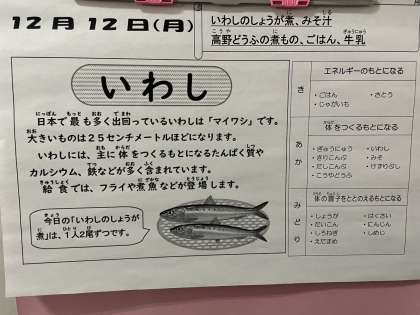 12月12日(月)
いわしのしょうが煮、みそ汁
高野どうふの煮もの、ごはん、牛乳
いわし
日本で最も多く出回っているいわしは「マイワシ」です。
大きいものは25センチメートルほどになります。
いわしには、主に体をつくるもとになるたんぱく質や
カルシウム、鉄などが多く含まれています。
給食では、フライや煮魚などが登場します。
今日の「いわしのしょうが
煮」は、1人2尾ずつです。
き
エネルギーのもとになる
・ごはん ・さとう
・じゃがいも
あか
体をつくるもとになる
・ぎゅうにゅう ・いわし
・きりこんぶ ・みそ
・だしこんぶ ・けずりぶし
・こうやどうふ
みどり
体の調子をととのえるもとになる
・しょうが ・はくさい
・だいこん ・にんじん
・しろねぎ ・しめじ
・えだまめ